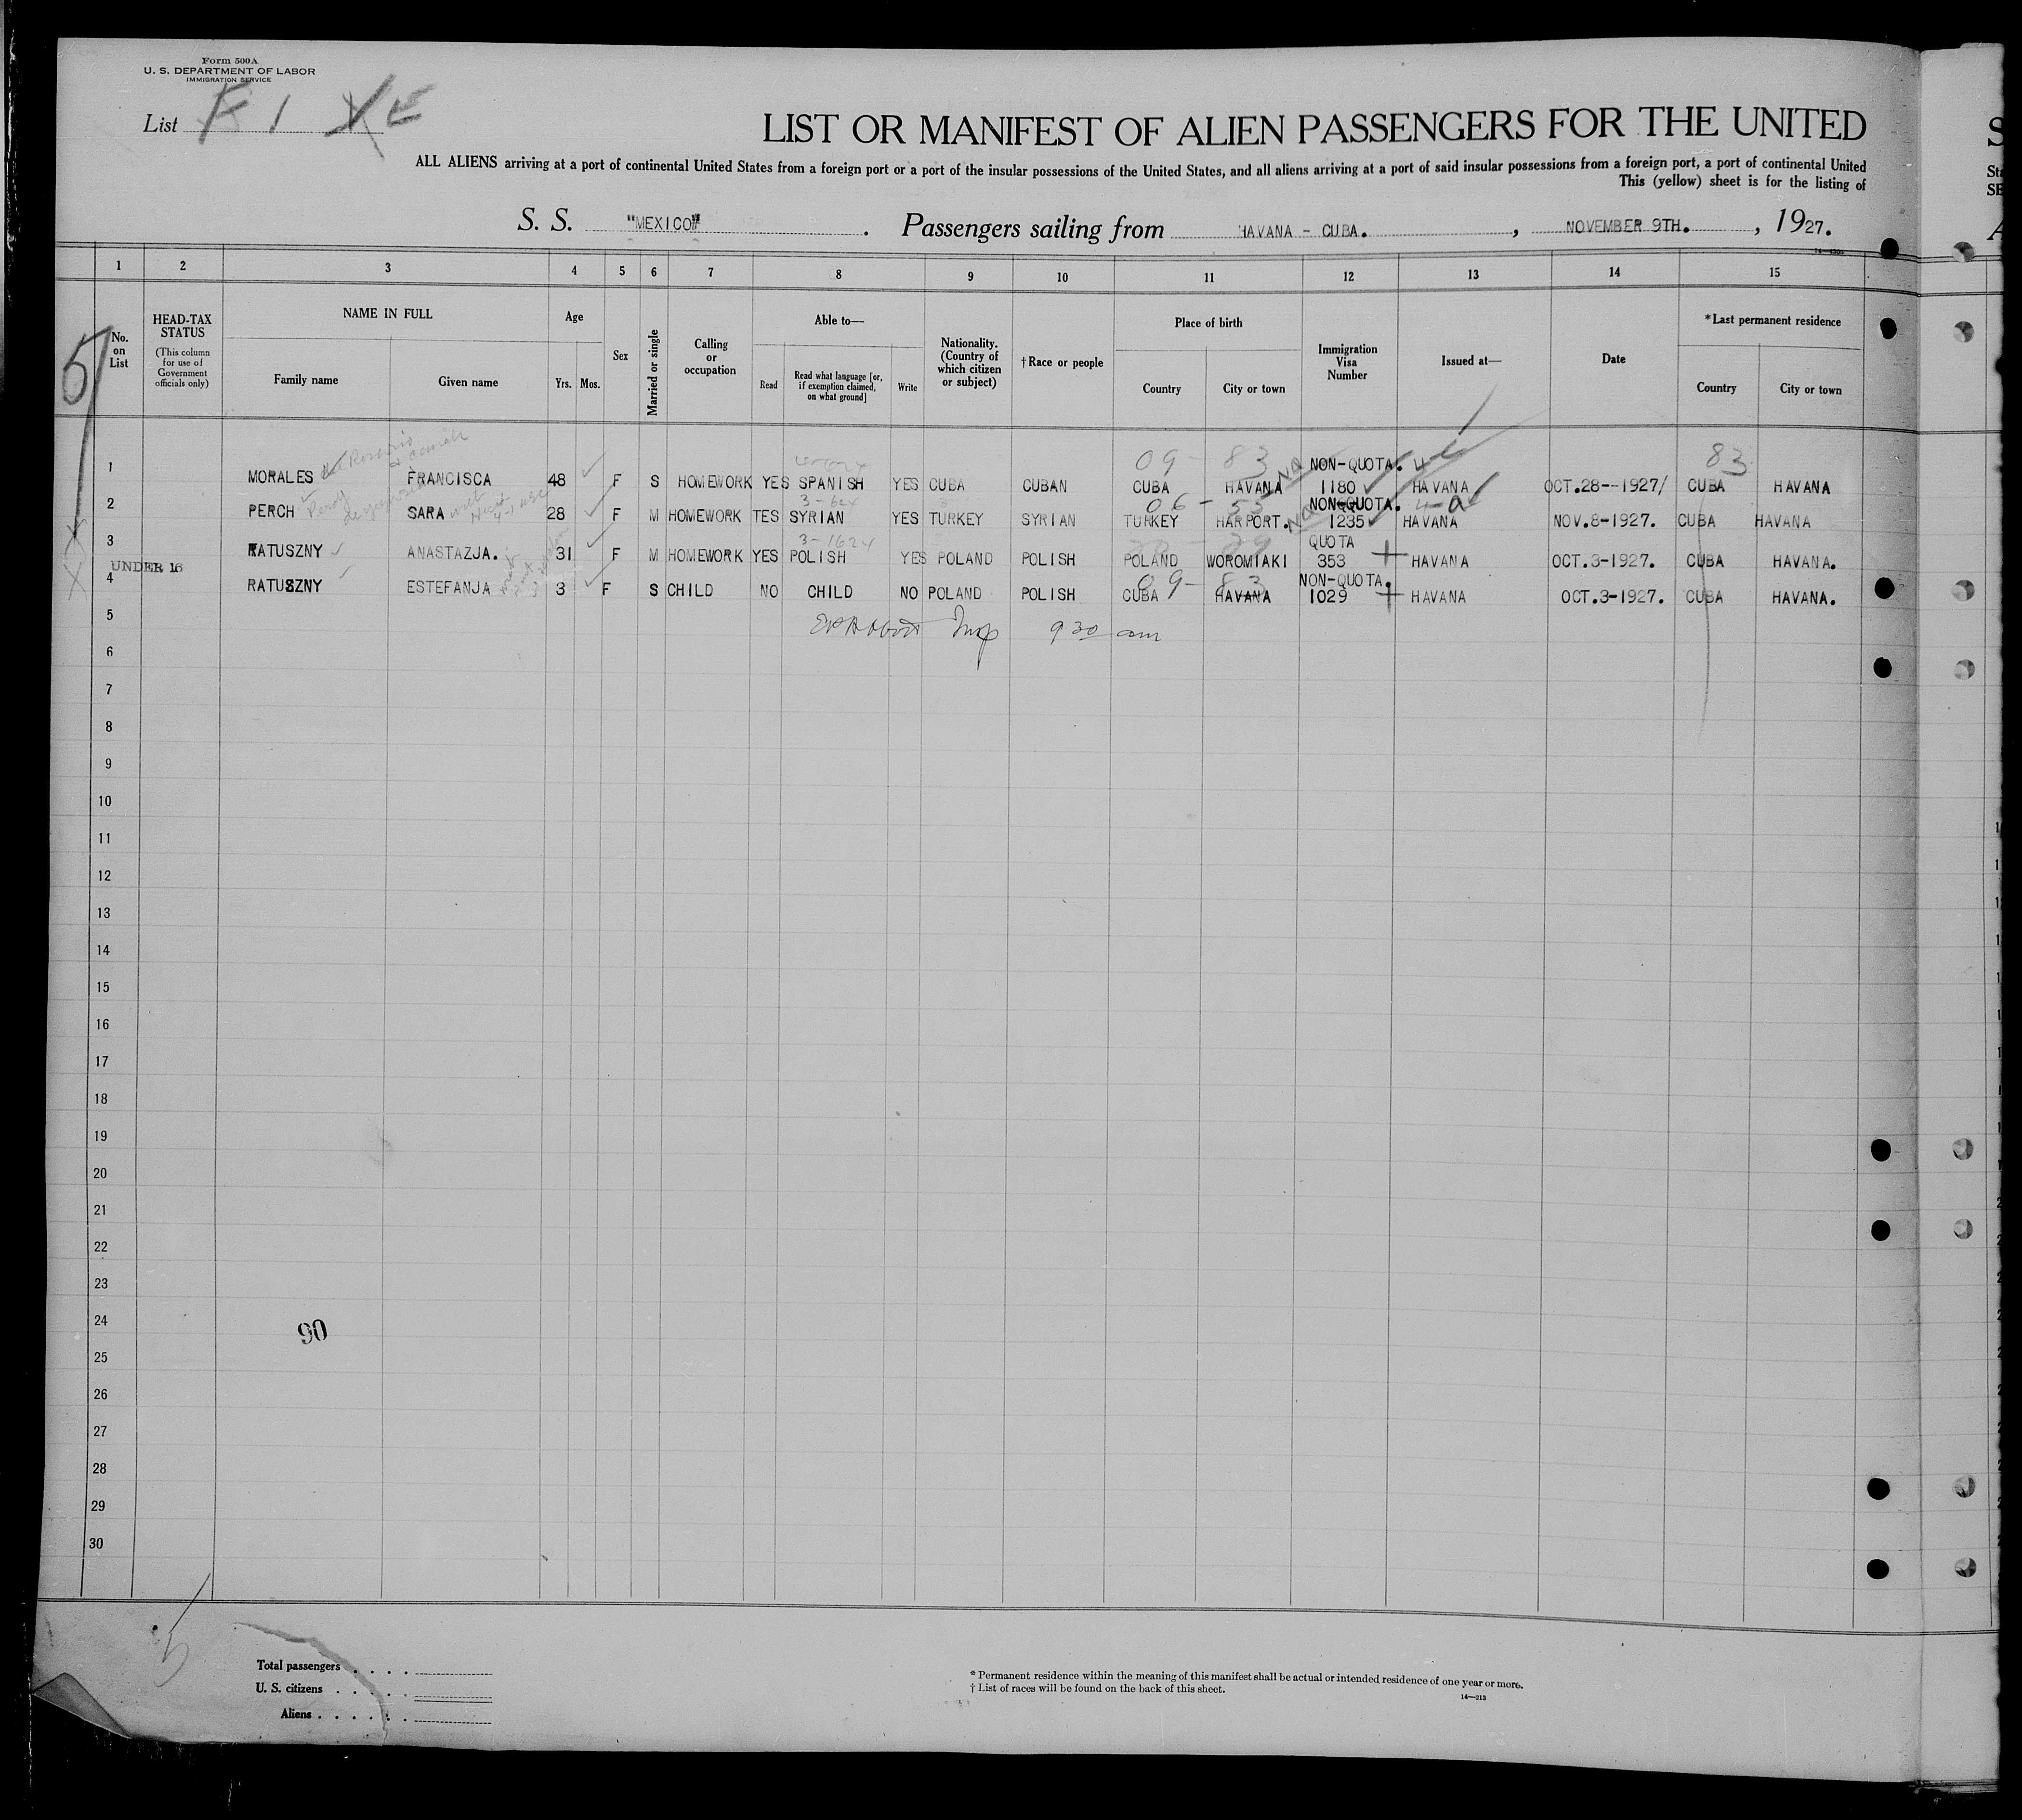 Form 500A
U. S. DEPARTMENT OF LABOR
IMMIGRATION SERVICE
List E 1 X E
LIST OR MANIFEST OF ALIEN PASSENGERS FOR THE UNITED
ALL ALIENS arriving at a port of continental United States from a foreign port or a port of the insular possessions of the United States, and all aliens arriving at a port of said insular possessions from a foreign port, a port of continental United
This (yellow) sheet is for the listing of
S. S. "MEXICO". Passengers sailing from HAVANA - CUBA. , NOVEMBER 9TH. , 1927.
1 2 3 4 5 6 7 8 9 10 11 12 13 14 15
No. on List
HEAD-TAX STATUS
(This column for use of Government officials only)
NAME IN FULL
Family name Given name
Age
Yrs. Mos.
Sex
Married or single
Calling or occupation
Able to—
Read Read what language [or, if exemption claimed, on what ground] Write
Nationality. (Country of which citizen or subject)
†Race or people
Place of birth
Country City or town
Immigration Visa Number
Issued at—
Date
*Last permanent residence
Country City or town
5
09 - 83 83
NON-QUOTA.
1 MORALES FRANCISCA 48 F S HOMEWORK YES SPANISH YES CUBA CUBAN CUBA HAVANA 1180 HAVANA OCT.28--1927/ CUBA HAVANA
06 - 53
NON-QUOTA.
2 PERCH SARA 28 F M HOMEWORK TES SYRIAN YES TURKEY SYRIAN TURKEY HARPORT. 1235 HAVANA NOV.8-1927. CUBA HAVANA
QUOTA
3 RATUSZNY ANASTAZJA. 31 F M HOMEWORK YES POLISH YES POLAND POLISH POLAND WOROMIAKI 353 HAVANA OCT.3-1927. CUBA HAVANA.
UNDER 16
09 - 83
NON-QUOTA.
4 RATUSZNY ESTEFANJA 3 F S CHILD NO CHILD NO POLAND POLISH CUBA HAVANA 1029 HAVANA OCT.3-1927. CUBA HAVANA.
5 Insp 9 30 am
6
7
8
9
10
11
12
13
14
15
16
17
18
19
20
21
22
23
24
90
25
26
27
28
29
30
5
Total passengers . . . .
U. S. citizens . . . . .
Aliens . . . . . .
* Permanent residence within the meaning of this manifest shall be actual or intended residence of one year or more.
† List of races will be found on the back of this sheet.
14—213